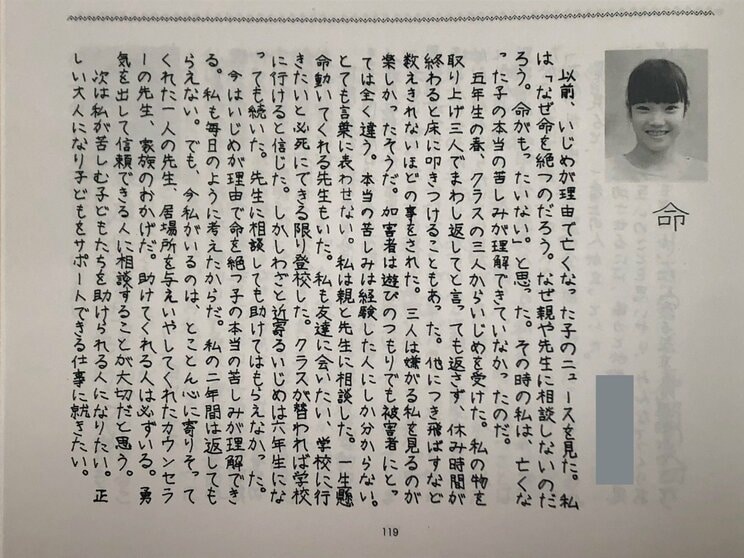 命
以前、いじめが理由で亡くなった子のニュースを見た。私
は「なぜ命を絶つのだろう。なぜ親や先生に相談しないのだ
ろう。命がもったいない」と思った。その時の私は、亡くな
った子の本当の苦しみが理解できていなかったのだ。
五年生の春、クラスの三人からいじめを受けた。私の物を
取り上げ三人でまわし返してと言っても返さず、休み時間が
終わると床に叩きつけることもあった。他につき飛ばすなど
数えきれないほどの事をされた。三人は嫌がる私を見るのが
楽しかったそうだ。加害者は遊びのつもりでも被害者にとっ
ては全く違う。本当の苦しみは経験した人にしか分からない。
とても言葉に表わせない。私は親と先生に相談した。一生懸
命動いてくれる先生もいた。私も友達に会いたい、学校に行
きたいと必死にできる限り登校した。クラスが替われば学校
に行けると信じた。しかしわざと近寄るいじめは六年生にな
っても続いた。先生に相談しても助けてはもらえなかった。
今はいじめが理由で命を絶つ子の本当の苦しみが理解でき
る。私も毎日のように考えたからだ。私の二年間は返しても
らえない。でも、今私がいるのは、とことん心に寄りそって
くれた一人の先生、居場所を与えいやしてくれたカウンセラ
ーの先生、家族のおかげだ。助けてくれる人は必ずいる。勇
気を出して信頼できる人に相談することが大切だと思う。
次は私が苦しむ子どもたちを助けられる人になりたい。正
しい大人になり子どもをサポートできる仕事に就きたい。
119